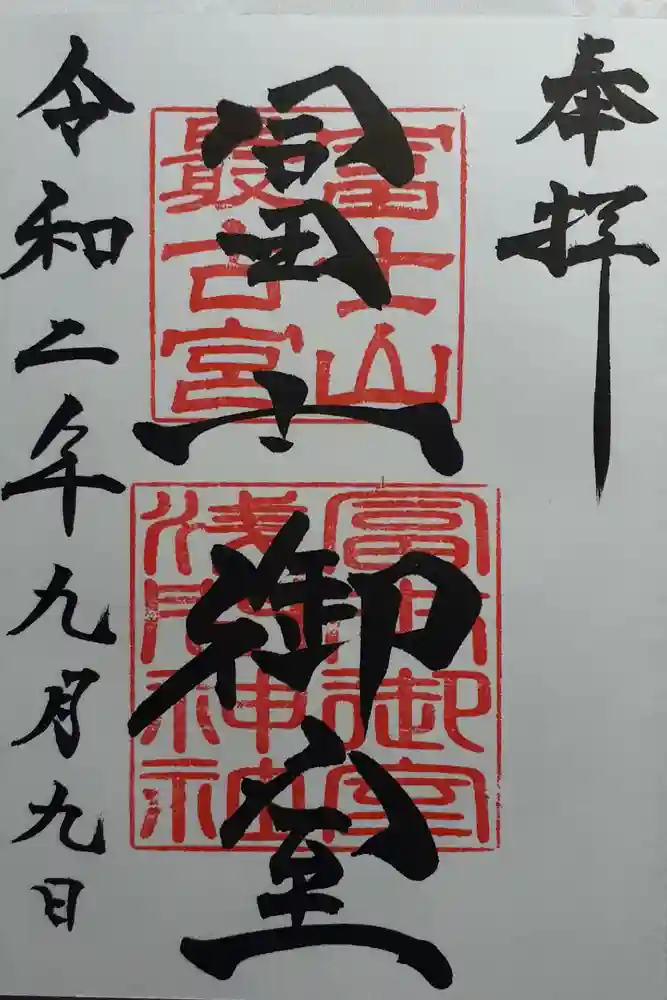 奉拝
冨士御室
富士山
最古宮
冨士御室
浅间神社
令和二年九月九日